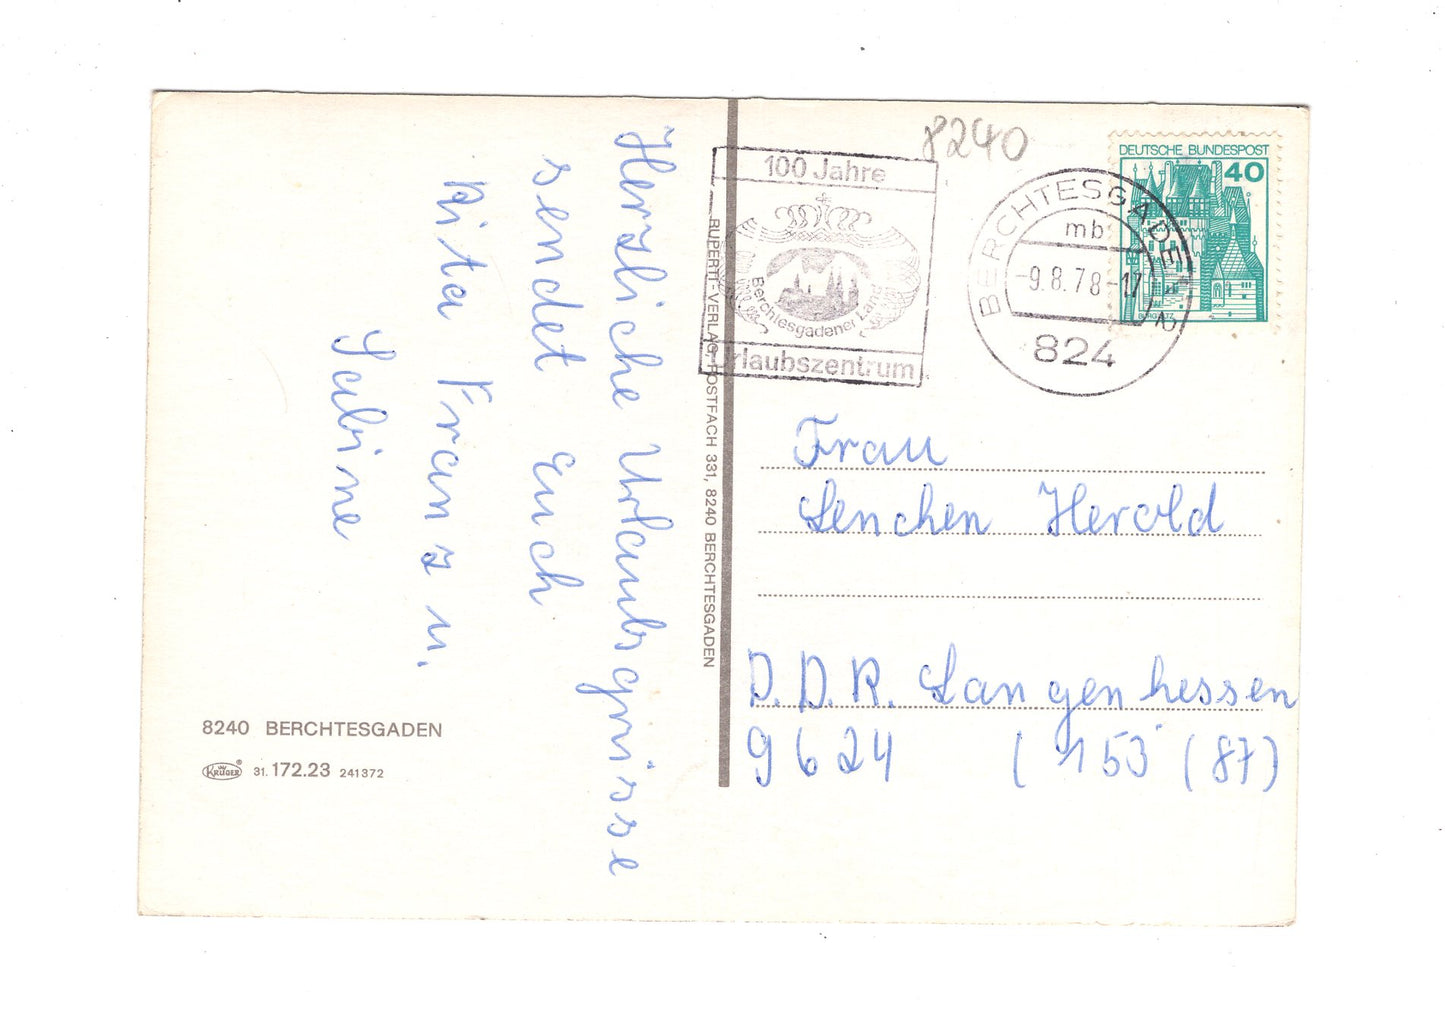 Herzliche Urlaubsgrüsse
sendet Euch
Rita Franz u.
Sabine
8240 BERCHTESGADEN
KRÜGER® 31. 172.23 241372
RUPERTI-VERLAG, POSTFACH 331, 8240 BERCHTESGADEN
8240
100 Jahre
Berchtesgadener Land
Urlaubszentrum
BERCHTESGADEN 2
mb
-9.8.78-17
824
DEUTSCHE BUNDESPOST
40
BURG ELTZ
Frau
Lenchen Herold
D.D.R. Langenhessen
9624 (153 (87)